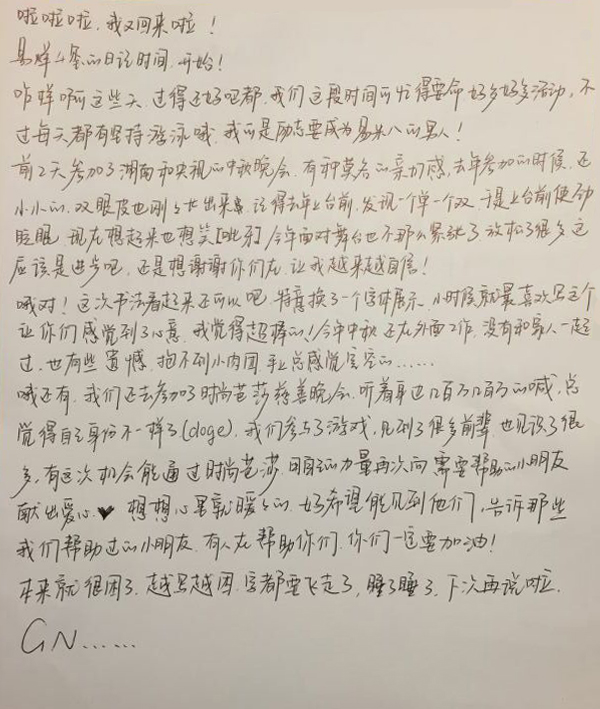 啦啦啦,我又回来啦!
易烊千玺的日记时间,开始!
咋样啊这些天,过得还好吧都,我们这段时间可忙得要命好多好多活动,不
过每天都有坚持游泳哦,我可是励志要成为易米八的男人!
前2天参加了湖南和央视的中秋晚会,有种莫名的亲切感,去年参加的时候,还
小小的,双眼皮也刚长出来,记得去年上台前,发现一个单一个双,于是上台前使劲
眨眼,现在想起来也想笑[呲牙]今年面对舞台也不那么紧张了,放松了很多这
应该是进步吧,还是想谢谢你们在,让我越来越自信!
哦对!这次书法看起来还可以吧,特意换了一个字体展示,小时候就最喜欢写这个
让你们感觉到了心意,我觉得超棒的!今年中秋还在外面工作,没有和家人一起
过,也有些遗憾,抱不到小肉团手上总感觉空空的……
哦还有,我们还去参加了时尚芭莎慈善晚会,听着耳边几百万几百万的喊,总
觉得自己身份不一样了(doge),我们参与了游戏,见到了很多前辈,也见识了很
多,有这次机会能通过时尚芭莎,用自己的力量再次向需要帮助的小朋友
献出爱心♥ 想想心里就暖暖的,好希望能见到他们,告诉那些
我们帮助过的小朋友,有人在帮助你们,你们一定要加油!
本来就很困了,越写越困,字都要飞走了,睡了睡了,下次再说啦.
GN……